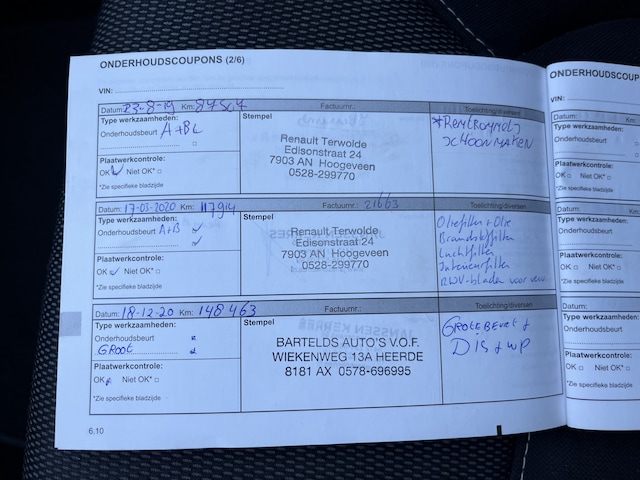 ONDERHOUDSCOUPONS (2/6)
VIN:
Datum: 23-8-19 Km: 87507 Factuurnr.: Toelichting/diversen
Type werkzaamheden:
Onderhoudsbeurt A+BL
Stempel
Renault Terwolde
Edisonstraat 24
7903 AN Hoogeveen
0528-299770
*REMTROMMELS
SCHOONMAKEN
Plaatwerkcontrole:
OK Niet OK*
*Zie specifieke bladzijde
Datum: 17-03-2020 Km: 117914 Factuurnr.: 21663 Toelichting/diversen
Type werkzaamheden:
Onderhoudsbeurt A+B
Stempel
Renault Terwolde
Edisonstraat 24
7903 AN Hoogeveen
0528-299770
Oliefilter + Olie
Brandstoffilter
Luchtfilter
Interieurfilter
RWV-bladen voor
Plaatwerkcontrole:
OK Niet OK*
*Zie specifieke bladzijde
Datum: 18-12-20 Km: 148463 Factuurnr.: Toelichting/diversen
Type werkzaamheden:
Onderhoudsbeurt
GROOT
Stempel
BARTELDS AUTO'S V.O.F.
WIEKENWEG 13A HEERDE
8181 AX 0578-696995
GROTE BEURT +
DIS + WP
Plaatwerkcontrole:
OK Niet OK*
*Zie specifieke bladzijde
6.10
ONDERHOUDSCOUP
VIN:
Datum:
Type werkzaamheden:
Onderhoudsbeurt
Plaatwerkcontrole:
OK Niet OK*
*Zie specifieke bladzijde
Datum:
Type werkzaamheden:
Onderhoudsbeurt
Plaatwerkcontrole:
OK Niet OK*
*Zie specifieke bladzijde
Datum:
Type werkzaamheden:
Onderhoudsbeurt
Plaatwerkcontrole:
OK Niet OK*
*Zie specifieke bladzijde